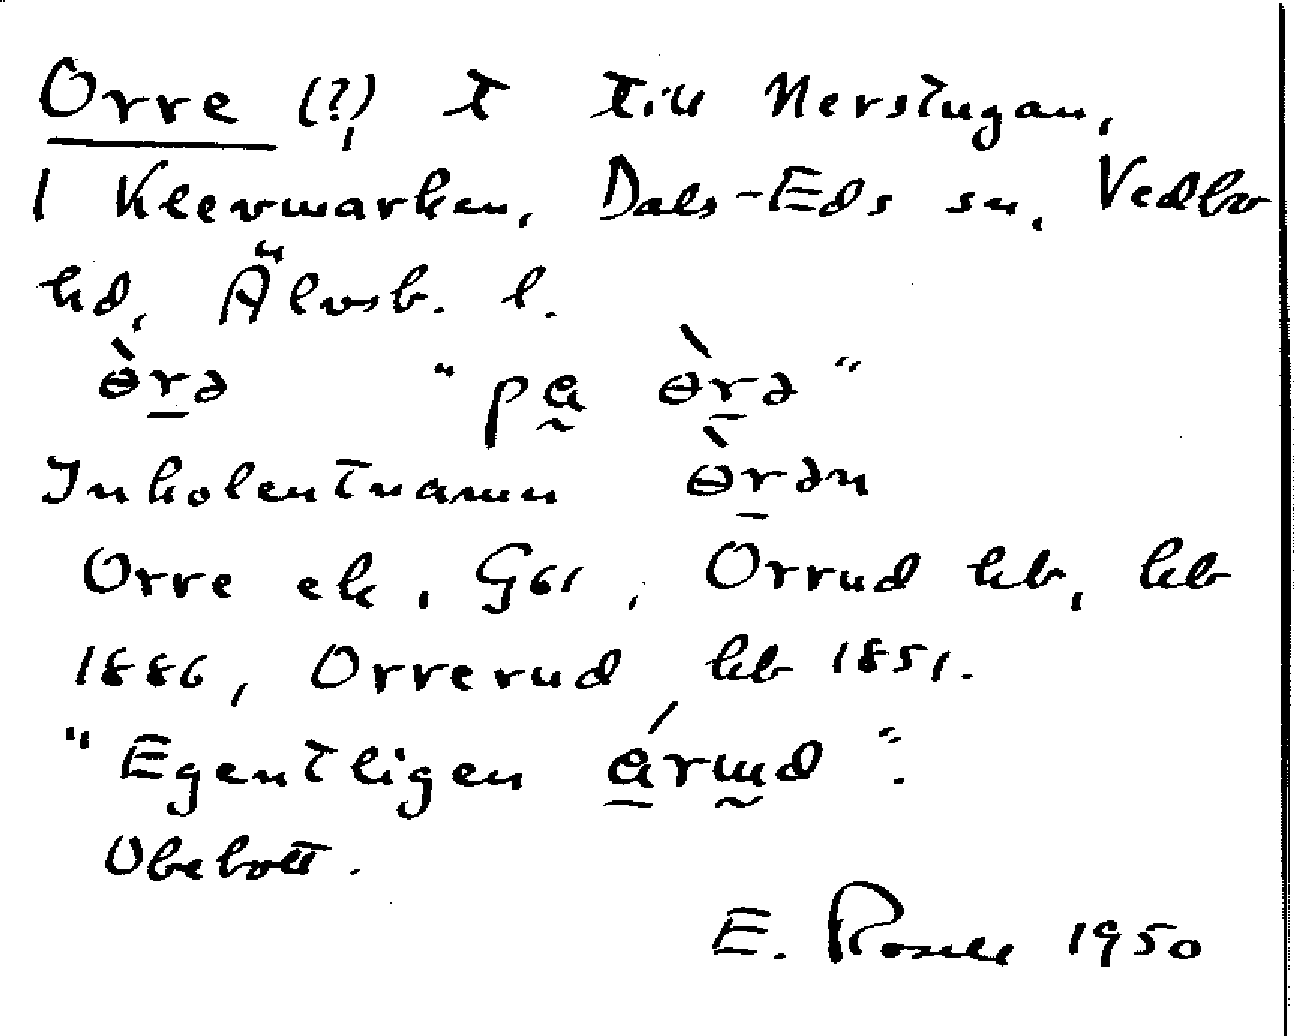 Orre (?), t till Nerstugan,
1 Kleevmarken, Dals-Eds sn, Vedbo
hd, Älvsb. l.
ɵ̀rə "pa ɵ̀rə"
Inkolentnamn ɵ̀rən
Orre ek, G61, Orrud kb, kb
1886, Orrerud kb 1851.
"Egentligen árud".
Obebott.
E. 1950